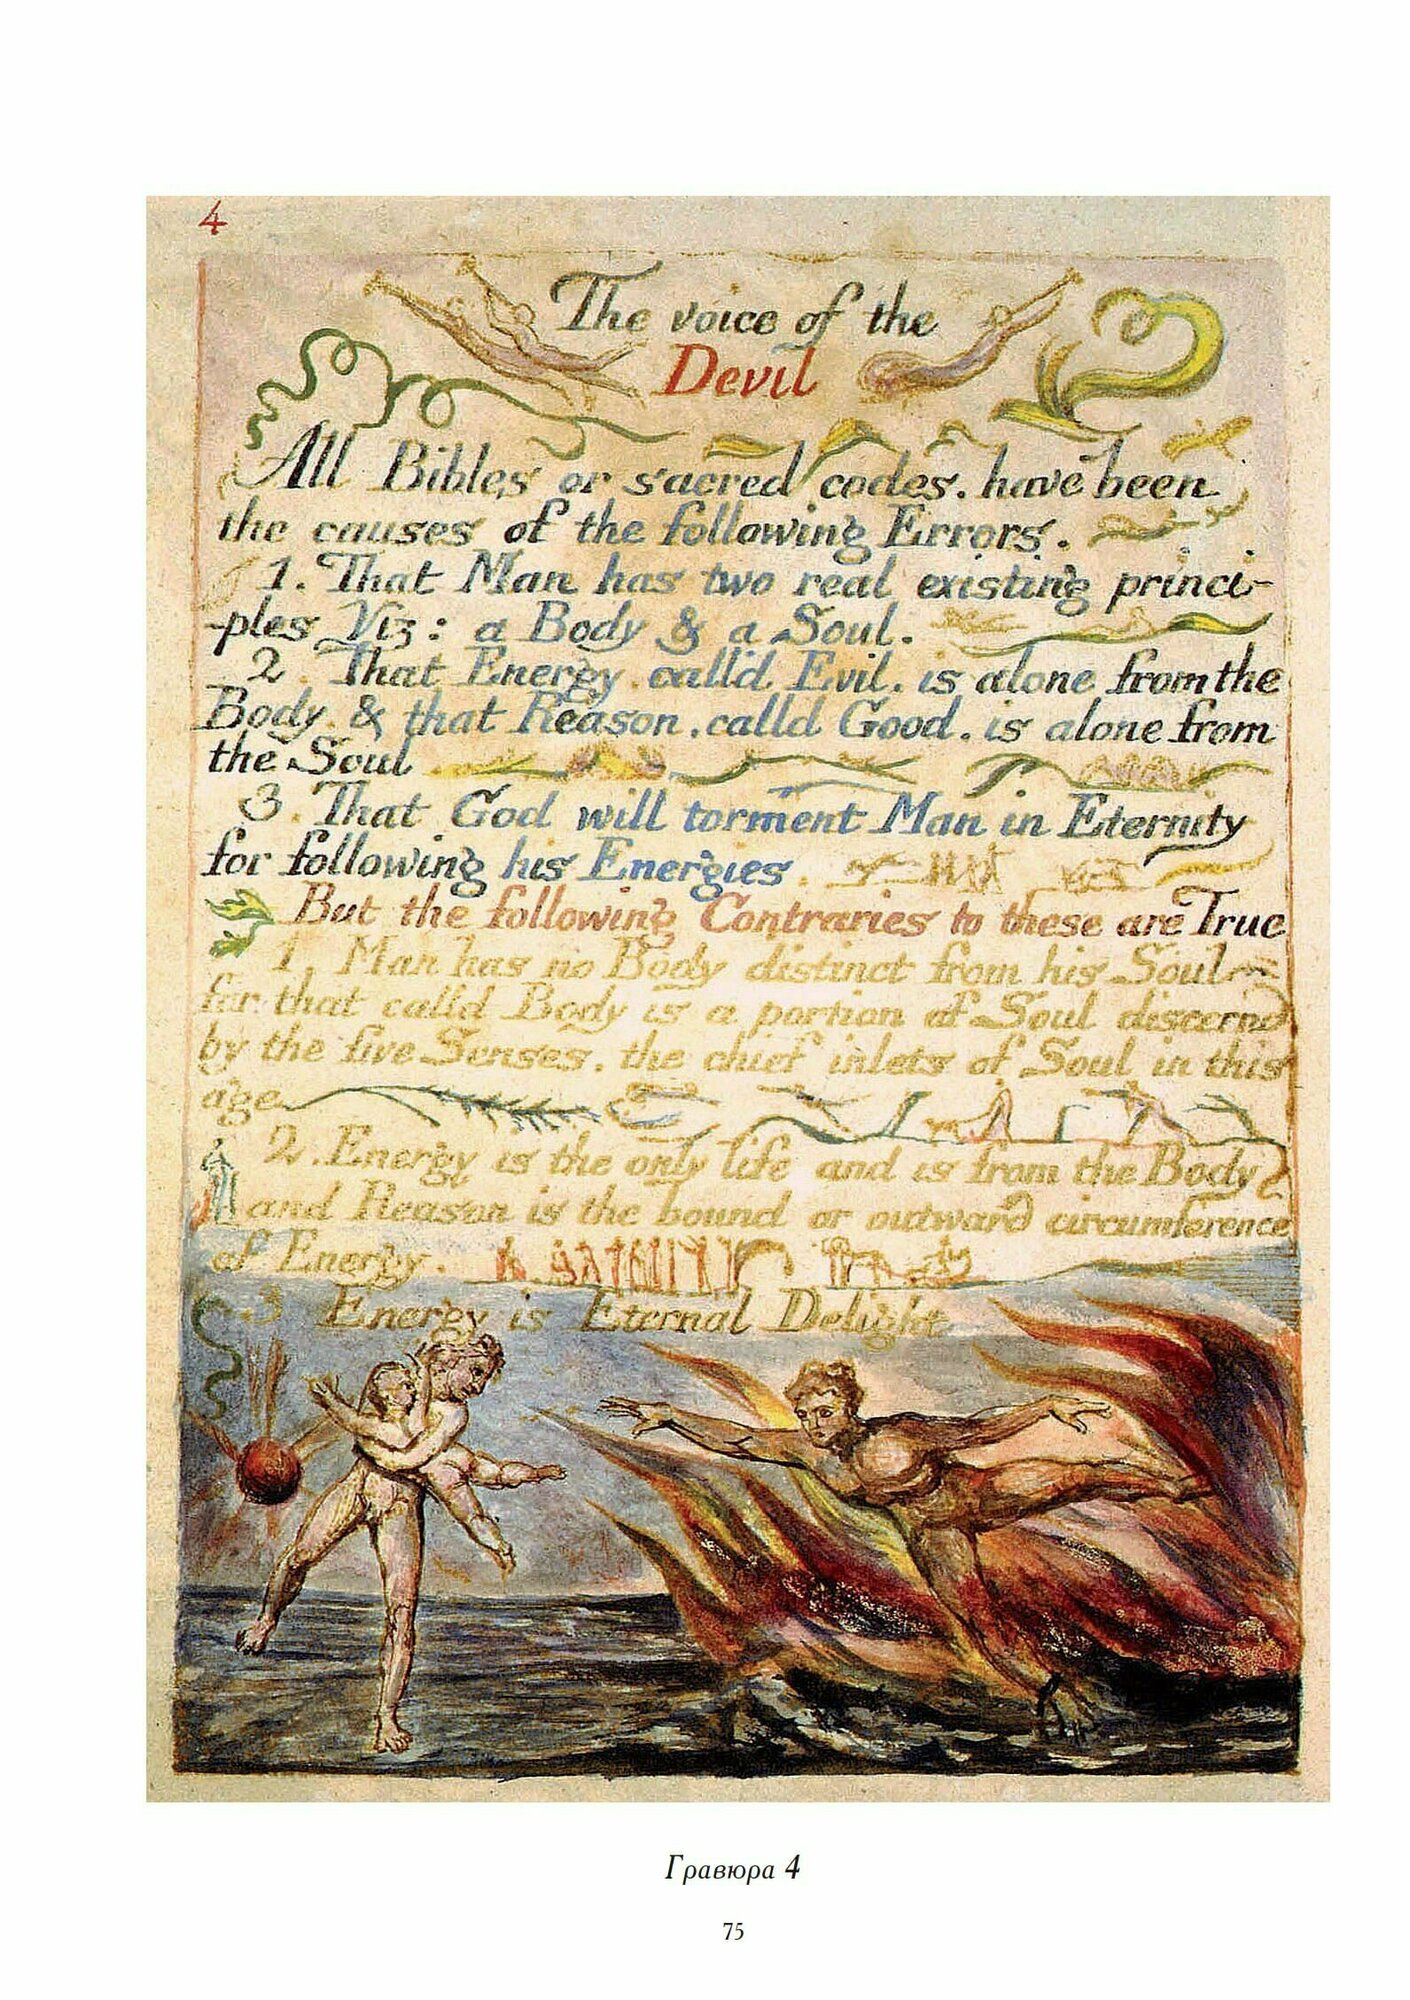 4
The voice of the
Devil
All Bibles or sacred codes. have been
the causes of the following Errors.
1. That Man has two real existing princi-
-ples Viz: a Body & a Soul.
2. That Energy. calld Evil. is alone from the
Body. & that Reason. calld Good. is alone from
the Soul
3. That God will torment Man in Eternity
for following his Energies.
But the following Contraries to these are True
1. Man has no Body distinct from his Soul
for that calld Body is a portion of Soul discernd
by the five Senses. the chief inlets of Soul in this
age
2. Energy is the only life and is from the Body
and Reason is the bound or outward circumference
of Energy.
3 Energy is Eternal Delight
Гравюра 4
75